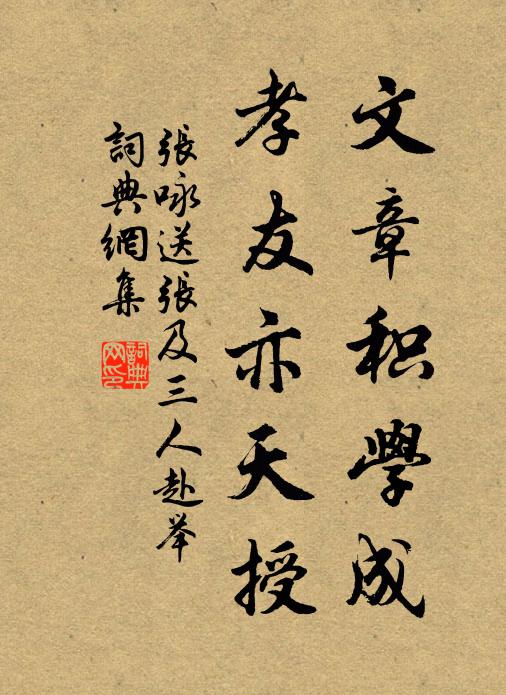 文章积學成
孝友亦天授
張咏送張及三人赴举
詞典網集
詞典网印